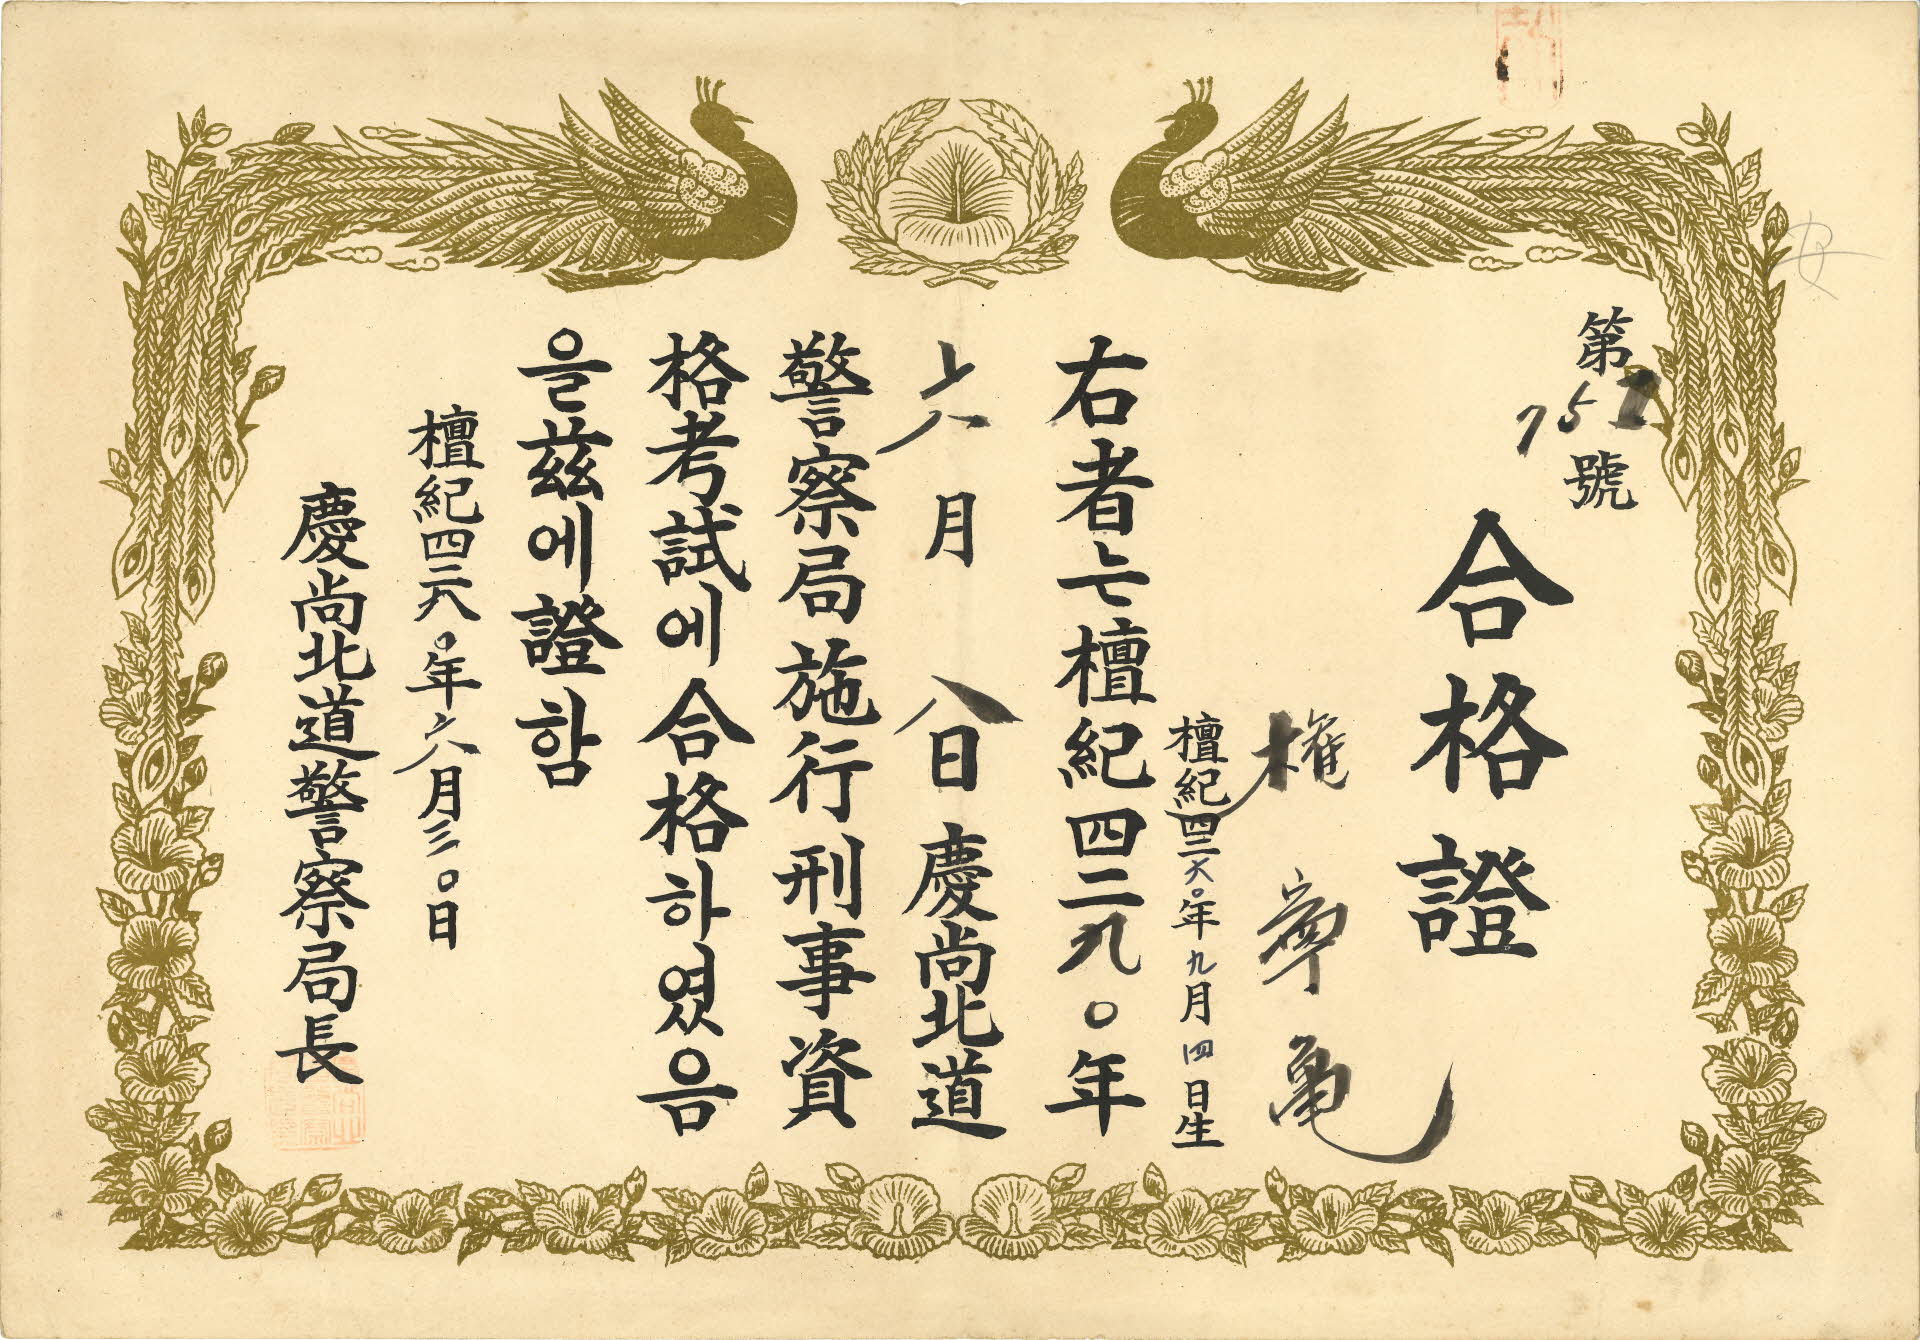 第 號
合格證
權寧龜
檀紀四二六〇年九月四日生
右者는檀紀四二九〇年
六月八日慶尚北道
警察局施行刑事資
格考試에合格하였음
을玆에證함
檀紀四二 〇年六月三〇日
慶尚北道警察局長